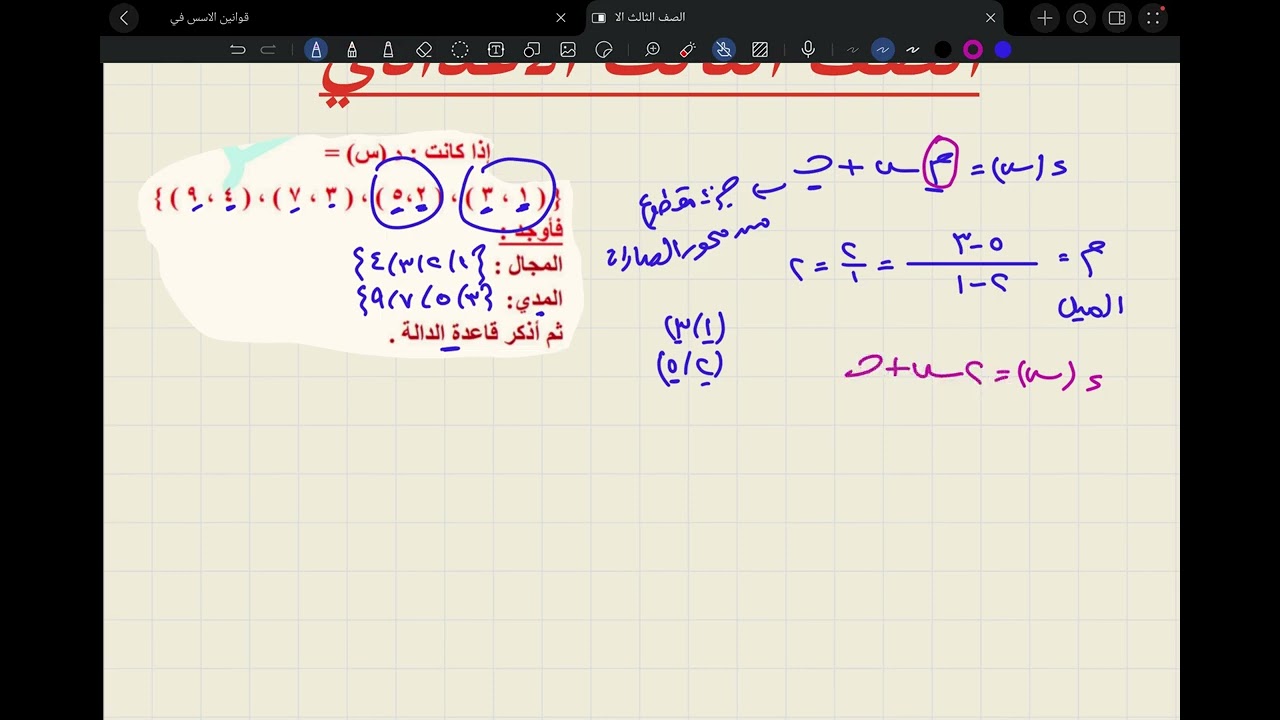 قوانين الاسس في
الصف الثالث الا
الصف الثالث الاعدادي
إذا كانت : د (س) =
{ (١ ، ٣) ، (٢ ، ٥) ، (٣ ، ٧) ، (٤ ، ٩) }
فأوجد :
المجال : {١ ، ٢ ، ٣ ، ٤}
المدي : {٣ ، ٥ ، ٧ ، ٩}
ثم أذكر قاعدة الدالة .
د (س) = م س + جـ
من محور الصادات
م = ٥ - ٣ / ٢ - ١ = ٢ / ١ = ٢
الميل
(١ ، ٣)
(٢ ، ٥)
د (س) = ٢ س + جـ